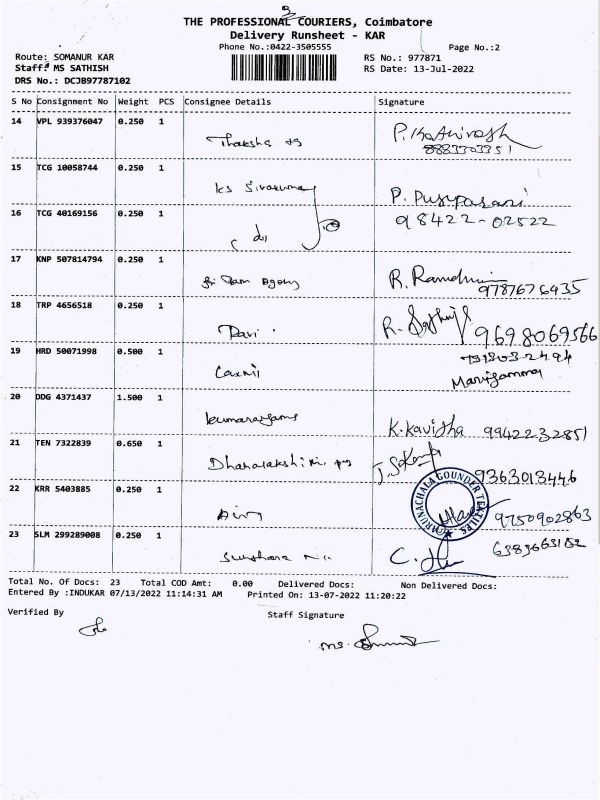 THE PROFESSIONAL COURIERS, Coimbatore
Delivery Runsheet - KAR
Phone No.:0422-3505555
Page No.:2
Route: SOMANUR KAR
RS No.: 977871
Staff: MS SATHISH
RS Date: 13-Jul-2022
DRS No.: DCJB97787102
S No Consignment No Weight PCS Consignee Details Signature
14 VPL 939376047 0.250 1
15 TCG 10058744 0.250 1
P. Pushpasani
16 TCG 40169156 0.250 1 98422-02522
17 KNP 507814794 0.250 1
Sri Ram Agency R. Ramdhu 9787676435
18 TRP 4656518 0.250 1
Ravi 9698069566
19 HRD 50071998 0.500 1
Laxmi Mariyamma
20 DDG 4371437 1.500 1
K. Kavitha 9942232851
21 TEN 7322839 0.650 1
9363013446
22 KRR 5403885 0.250 1
ARUNACHALA GOUNDER TEXTILES
9750902863
23 SLM 299289008 0.250 1
6383663182
Total No. Of Docs: 23 Total COD Amt: 0.00 Delivered Docs: Non Delivered Docs:
Entered By :INDUKAR 07/13/2022 11:14:31 AM Printed On: 13-07-2022 11:20:22
Verified By Staff Signature